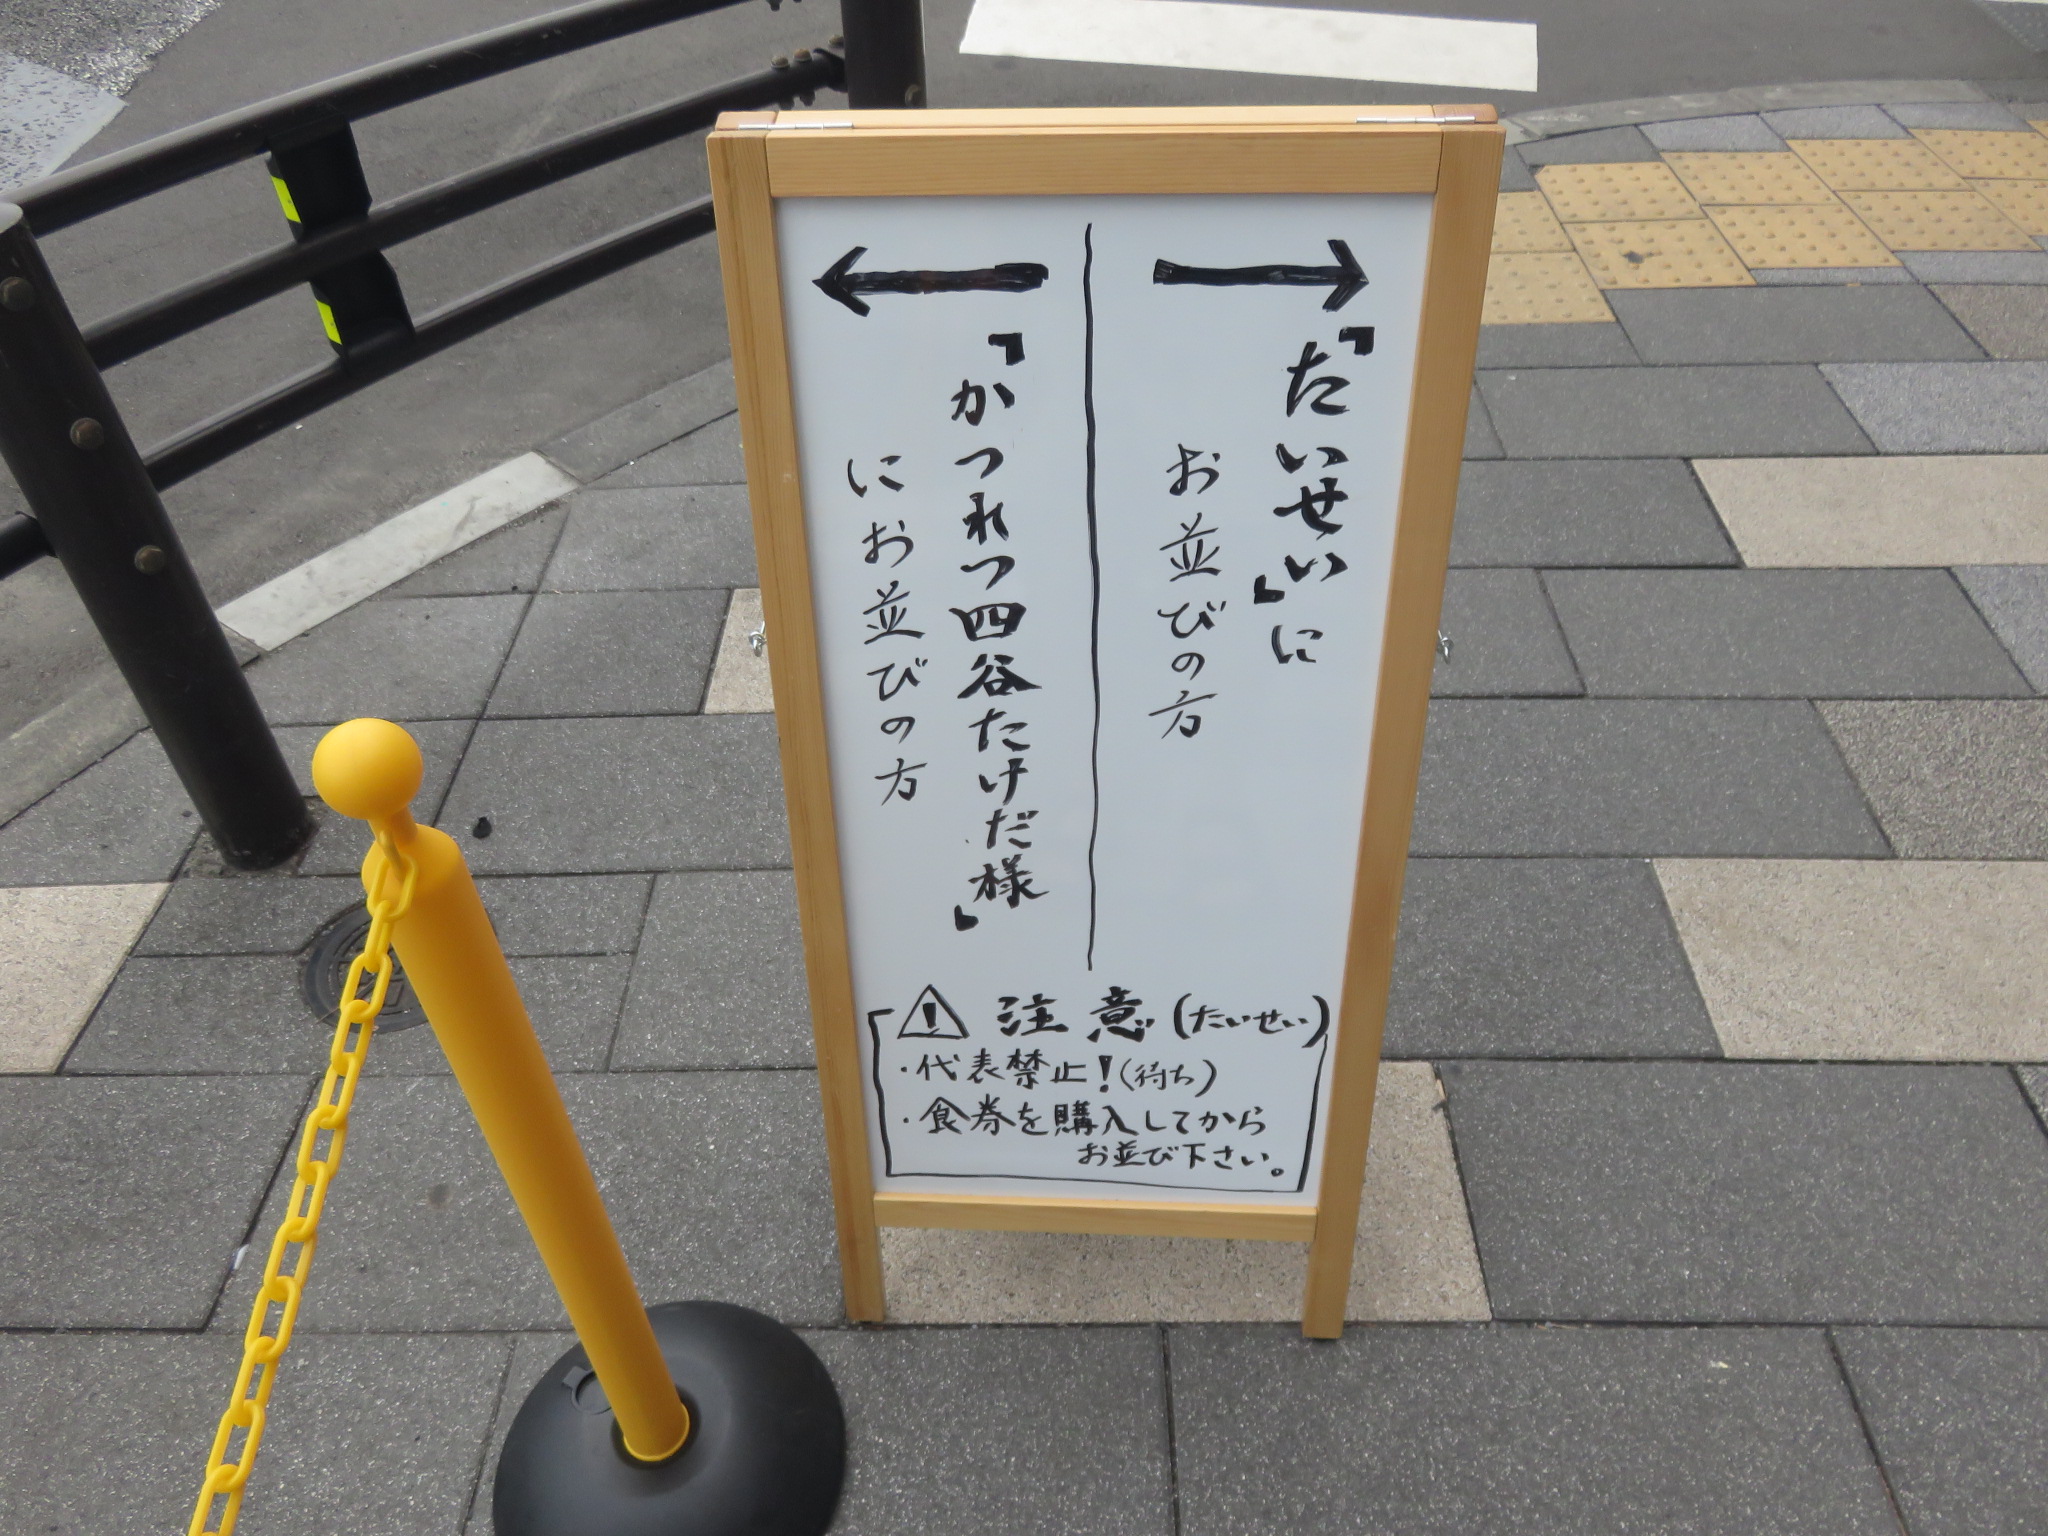 →
「たいせい」に
お並びの方
←
「かつれつ四谷たけだ様」
にお並びの方
⚠ 注意(たいせい)
・代表禁止!(待ち)
・食券を購入してから
お並び下さい。